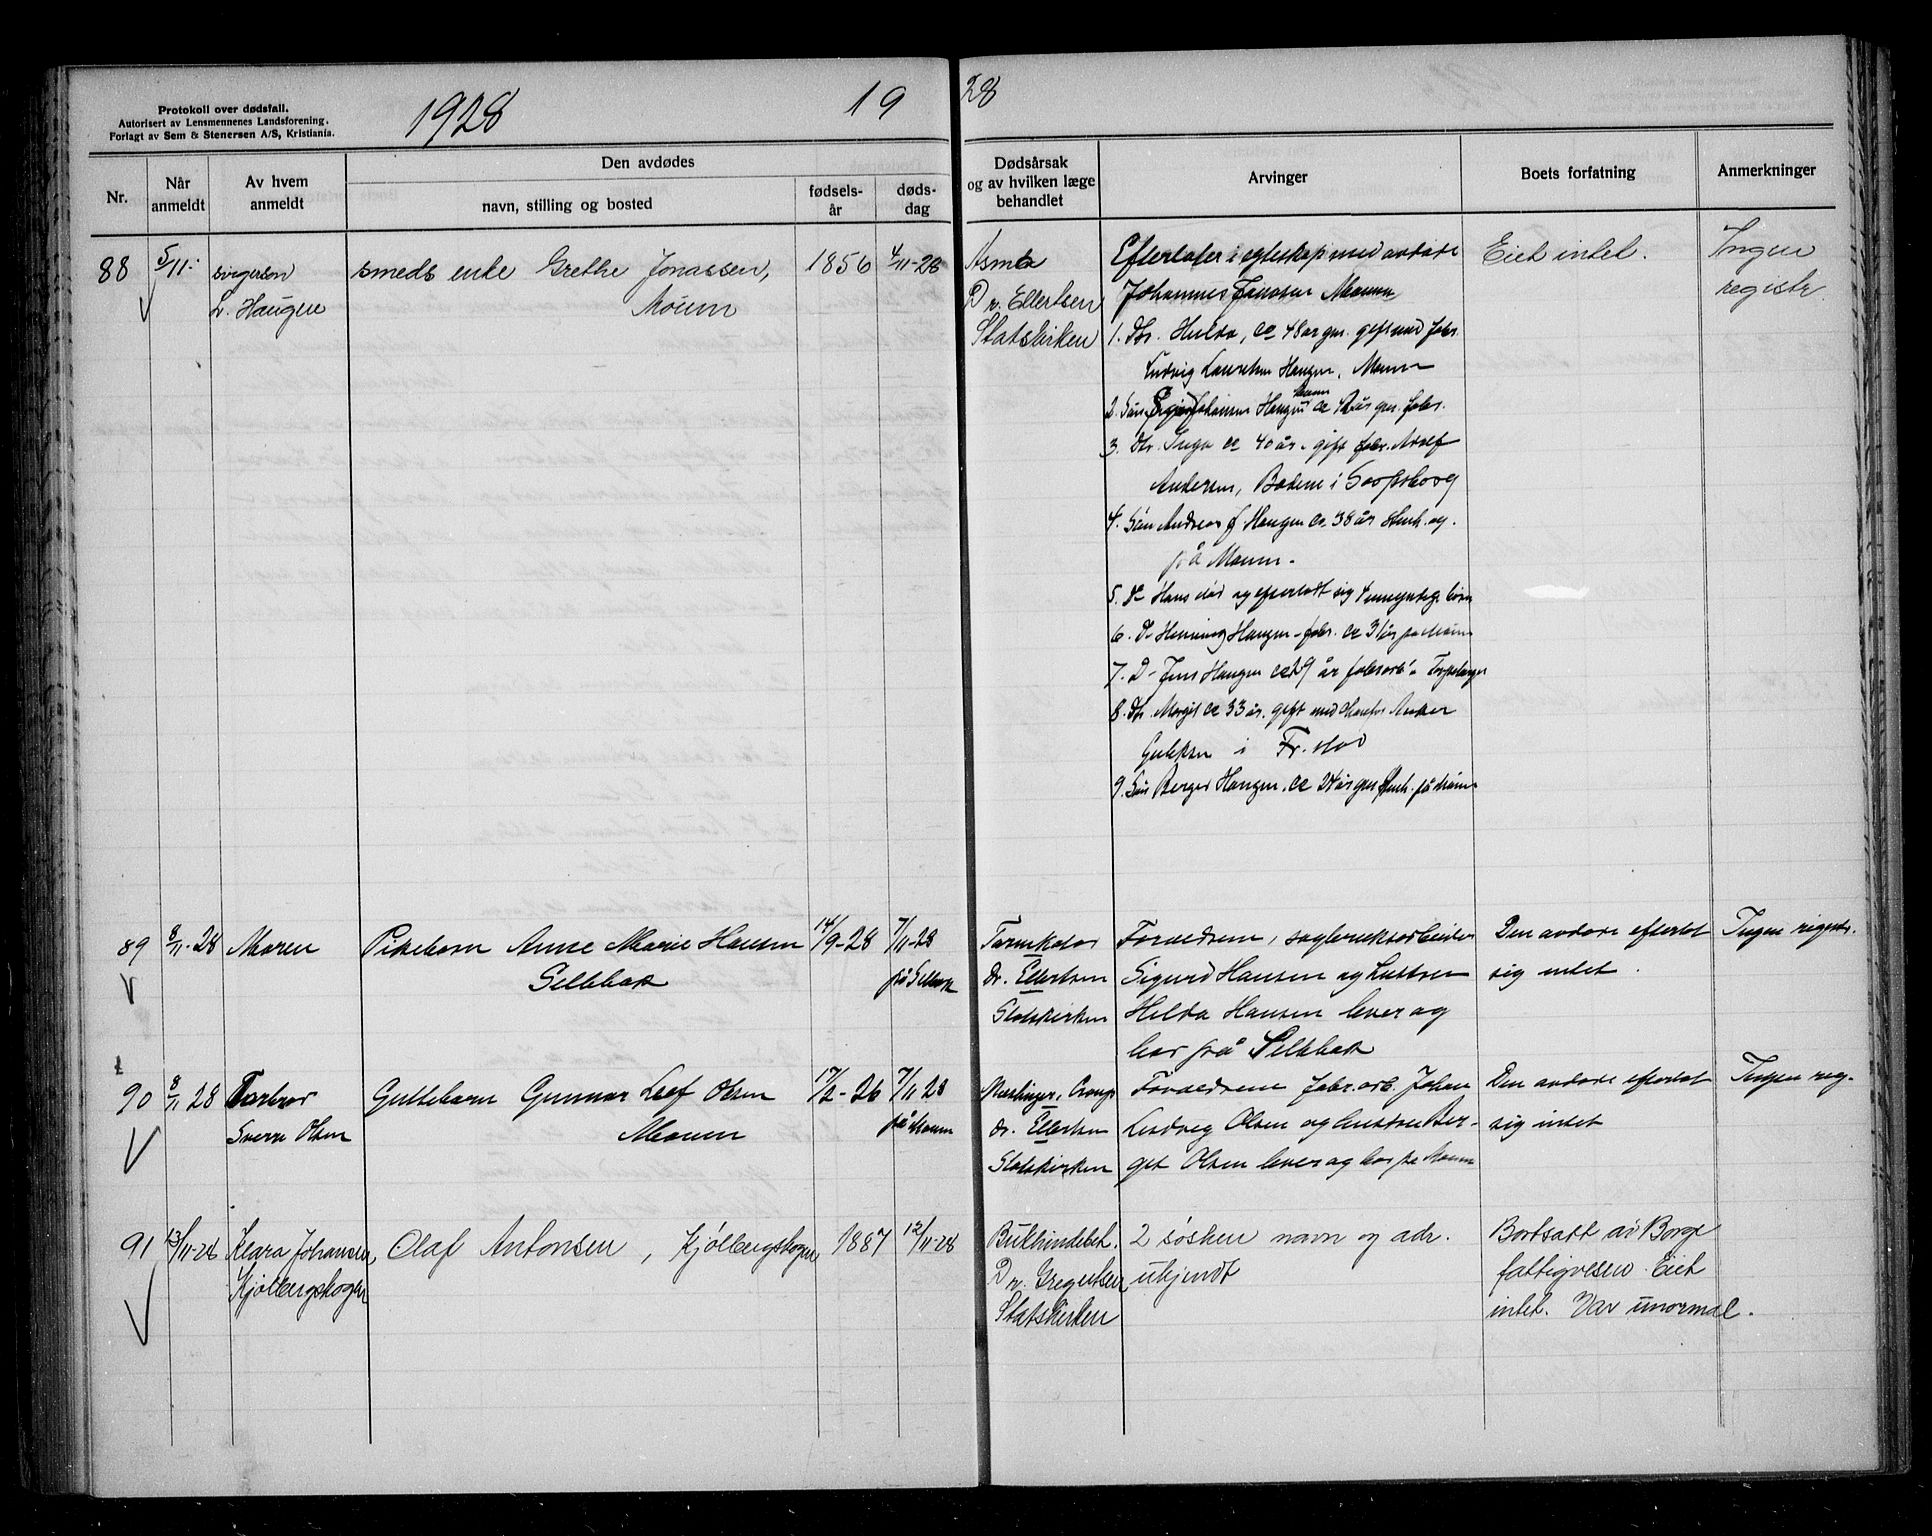 Protokoll over dødsfall.
Autorisert av Lensmennenes Landsforening.
Forlagt av Sem & Stenersen A/S, Kristiania.
1928
19 28
Nr.
Når anmeldt
Av hvem anmeldt
Den avdødes
navn, stilling og bosted
fødsels-år
døds-dag
Dødsårsak og av hvilken læge behandlet
Arvinger
Boets forfatning
Anmerkninger
88
5/11.
svigersøn
L. Haugen
smeds enke Grethe Jonassen,
Moum
1856
4/11-28
Asma
Dr. Ellertsen
Statskirken
Efterlater i egteskap med avdøde
Johannes Jonassen Moum
1. Dtr. Hulda, ca 48 år gml. gift med fabr.
Ludvig Lauritsen Haugen, Moum
2. Søn Johansen Haugen Moum ca 42 år gml. fabr.
3. Dtr. Inga ca 40 år - gift fabr. Adolf
Andersen, Bodene i Sarpsborg
4. Søn Andreas J. Haugen ca. 38 år
på Moum.
5. D- Hans død og efterlodt sig 4 umyndige børn
6. D- Henning Haugen - fabr. ca 31 år på Moum
7. D- Jens Haugen ca 29 år fabr.arb.
8. Dtr. Margit ca 33 år, gift med Anker
i Fr.stad
9. Søn Birger Haugen, ca 24 år gml på Moum
Eiet intet.
Ingen
registr.
89
8/11-28
Moren
Pikebarn Anne Marie Hansen
Selbak
14/9-28
7/11-28
på Selbak
Tarmkatar
Dr. Ellertsen
Statskirken
Forældrene, sagbruksarbeider
Sigurd Hansen og hustru
Hilda Hansen lever og
bor på Selbak
Den avdøde efterlot
sig intet.
Ingen registr.
90
8/11 28
Farbror
Sverre Olsen
Guttebarn Gunnar Leif Olsen
Moum
17/2-26
7/11 28
på Moum
Meslinger, Croup
Dr. Ellertsen
Statskirken
Forældrene fabr.arb. Johan
Ludvig Olsen og hustru Ber-
get Olsen lever og bor på Moum
Den avdøde efterlot
sig intet
Ingen reg.
91
13/11-28
Klara Johansen,
Kjølbergskogen
Olaf Antonsen, Kjølbergskogen
1887
12/11-28
Bukhindebet.
Dr. Gregertsen
Statskirken
2 søsken navn og adr.
ukjendt
Bortsatt av Borge
fattigvesen. Eiet
intet. Var unormal.